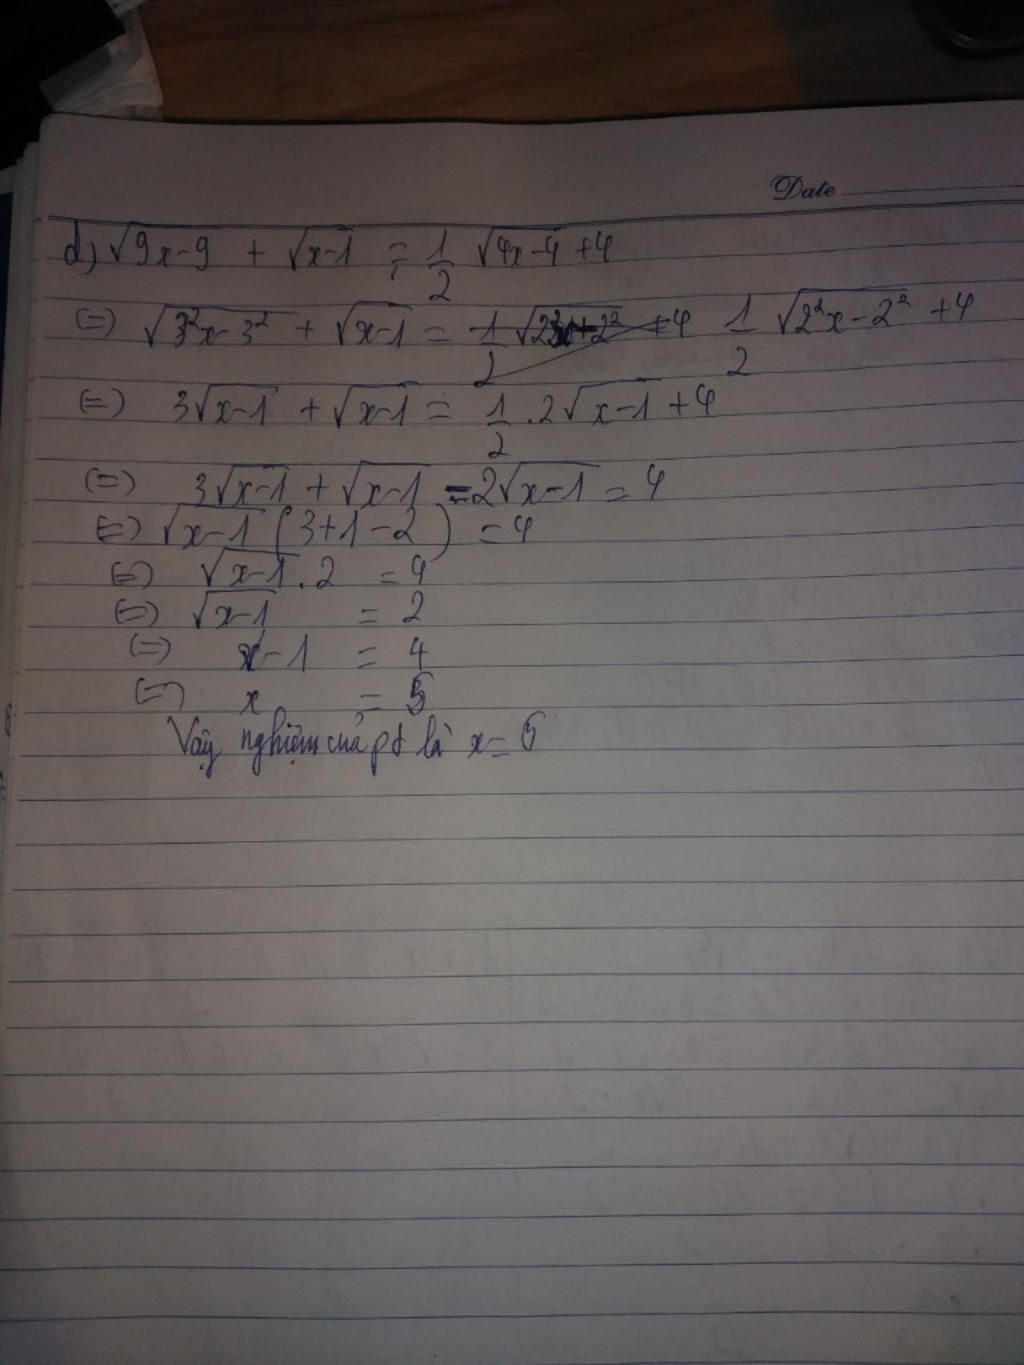 Date
d) √(9x-9) + √(x-1) = 1/2 √(4x-4) + 4
(=) √(3²x-3²) + √(x-1) = 1/2 √(2²x-2²) + 4
(=) 3√(x-1) + √(x-1) = 1/2 . 2√(x-1) + 4
(=) 3√(x-1) + √(x-1) - 2√(x-1) = 4
(=) √(x-1) (3+1-2) = 4
(=) √(x-1) . 2 = 4
(=) √(x-1) = 2
(=) x-1 = 4
(=) x = 5
Vậy nghiệm của pt là x = 5